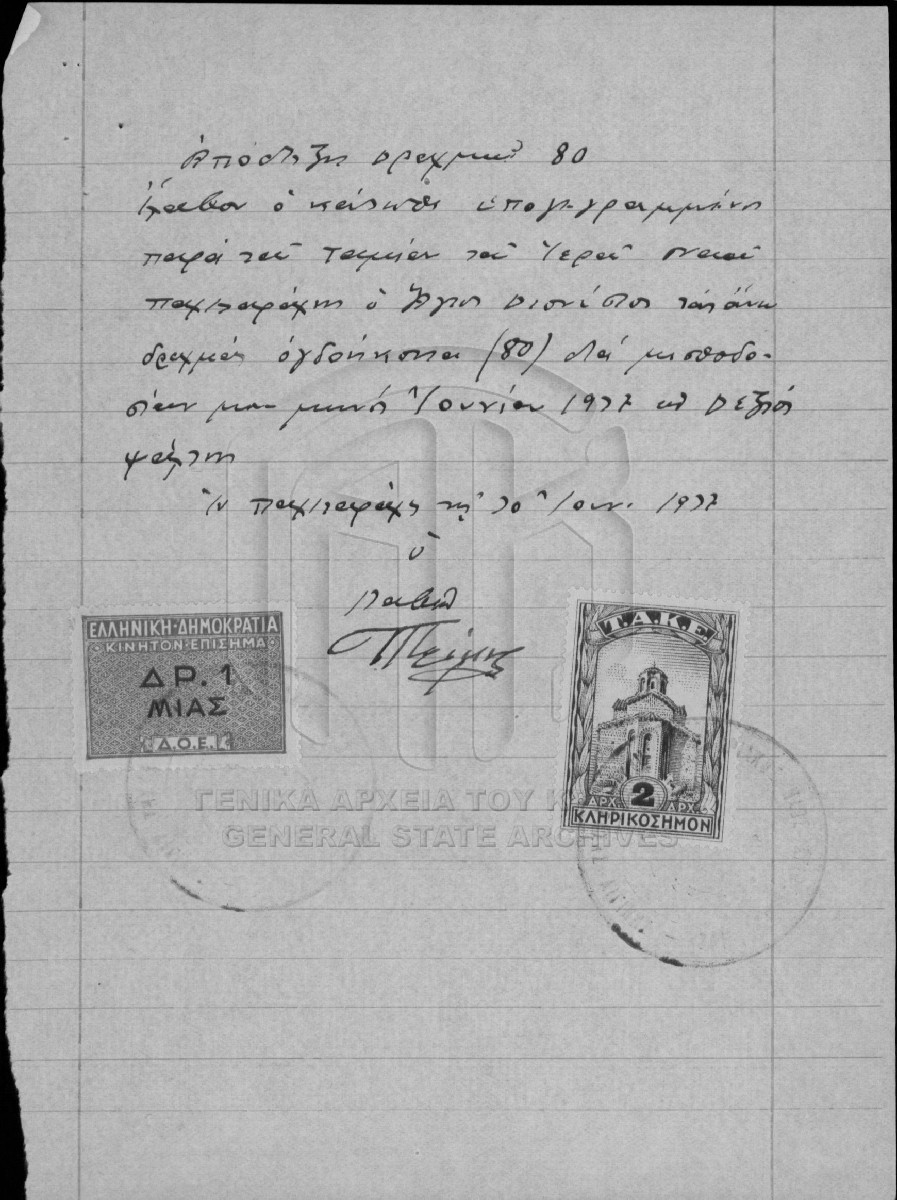 Απόδειξης Δραχμας 80
Έλαβον ό κάτωθι υπογεγραμμένης
παρά του Ταμίαν του Ίερού Ναού
Παχιταράχης ό Άγιος Διονίσιος τας άνω
δραχμάς όγδοήκοντα (80) διά μισθοδο-
σίαν μου μηνός Ίουνίου 1937 ως Δεξιός
ψάλτης
τής 30 Ίουν. 1937
ό
Λαβών
ΕΛΛΗΝΙΚΗ·ΔΗΜΟΚΡΑΤΙΑ
ΚΙΝΗΤΟΝ·ΕΠΙΣΗΜΑ
ΔΡ. 1
ΜΙΑΣ
Δ.Ο.Ε.
Τ.Α.Κ.Ε
ΔΡΧ 2 ΔΡΧ.
ΚΛΗΡΙΚΟΣΗΜΟΝ
ΓΕΝΙΚΑ ΑΡΧΕΙΑ ΤΟΥ Κ
GENERAL STATE ARCHIVES